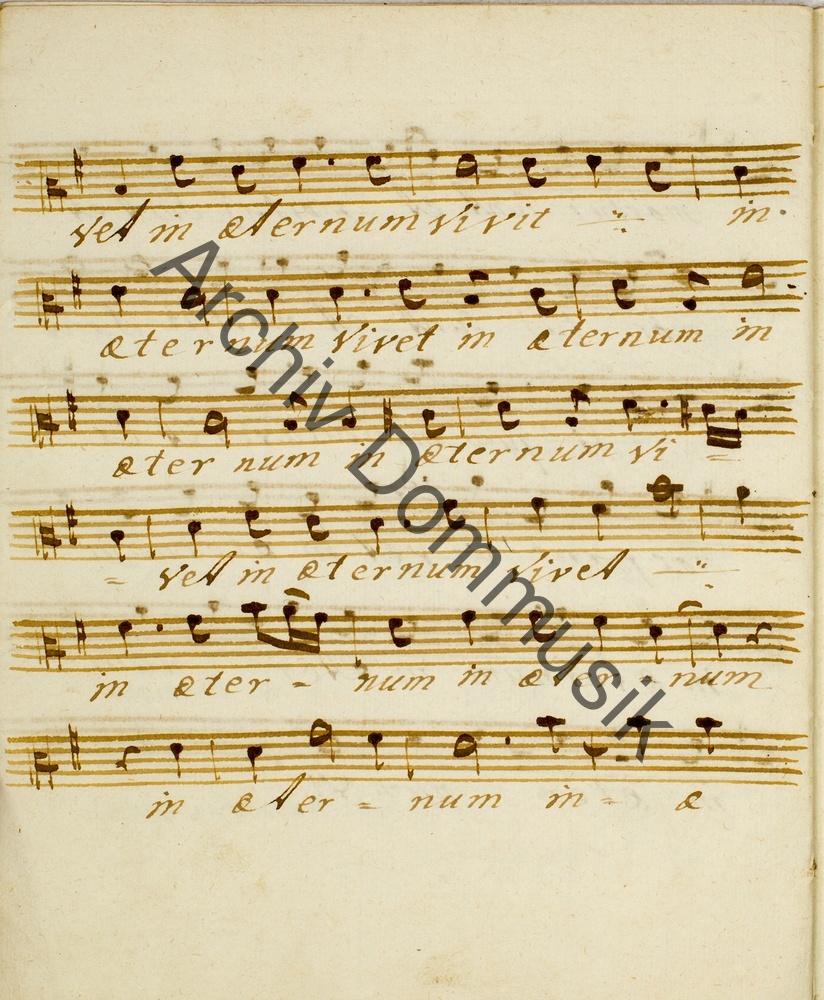 vet in æternum vivit in
æternum vivet in æternum in
æter num in æternum vi -
= vet in æternum vivet
in æter - num in æter - num
in æter = num in = æ
Archiv Dommusik